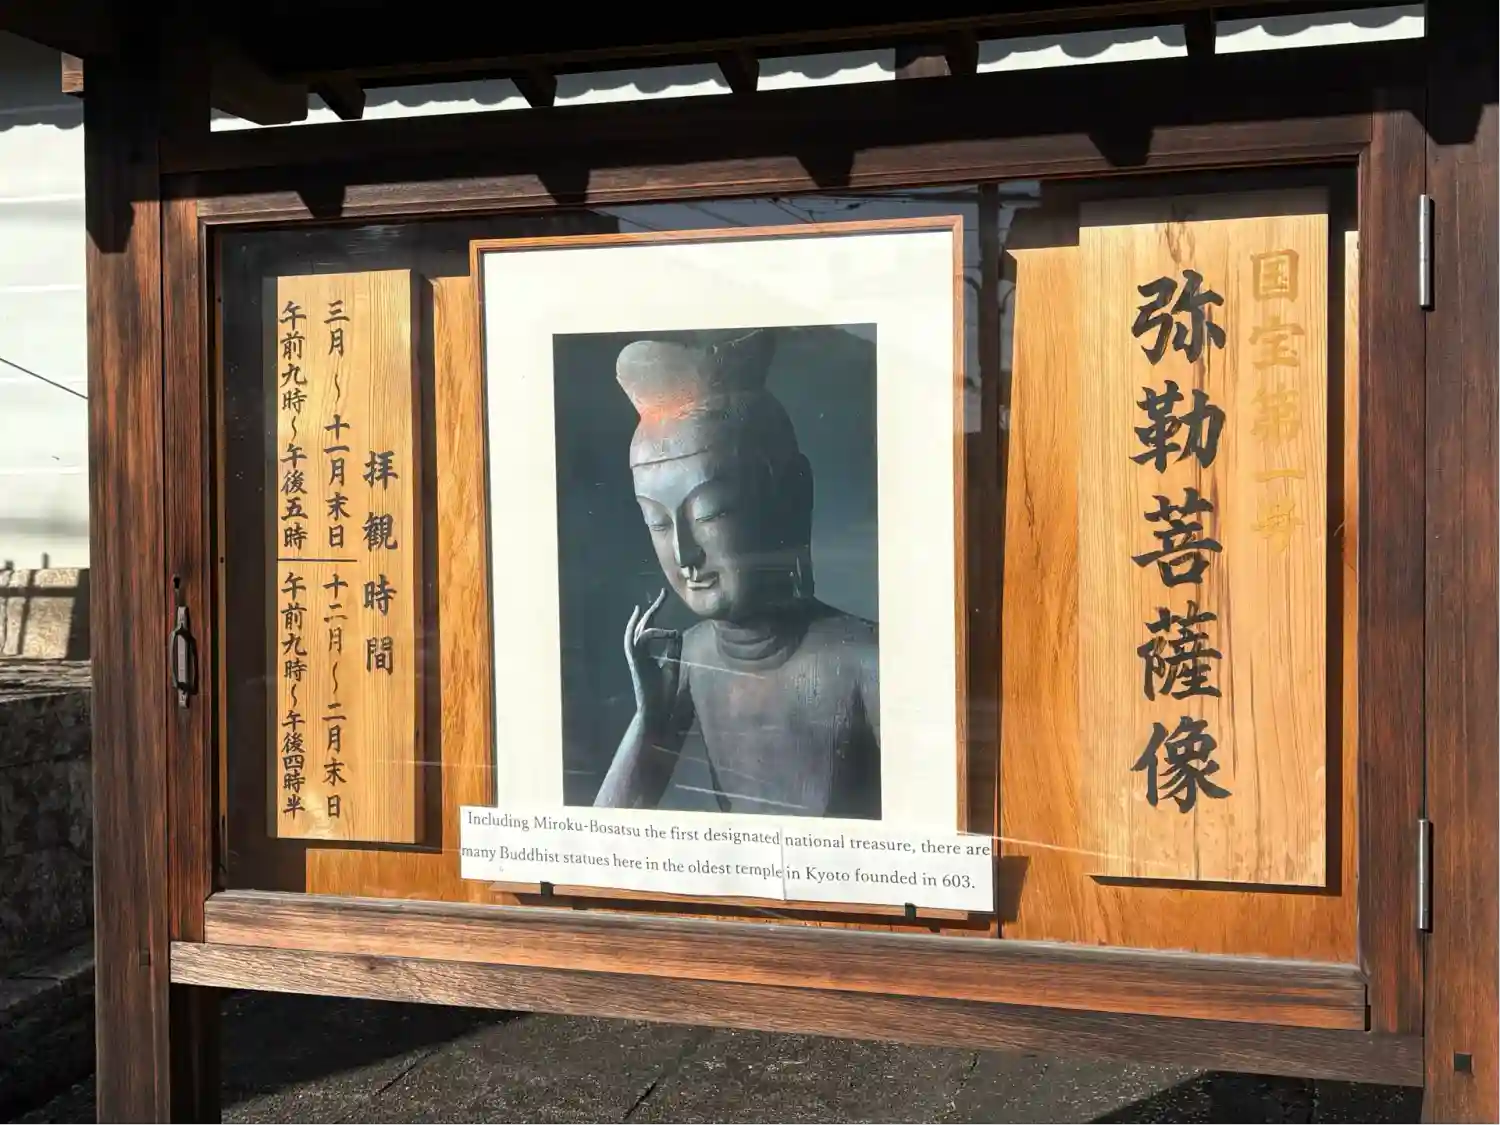 国宝第一号
弥勒菩薩像
拝観時間
三月〜十一月末日
午前九時〜午後五時
十二月〜二月末日
午前九時〜午後四時半
Including Miroku-Bosatsu the first designated national treasure, there are
many Buddhist statues here in the oldest temple in Kyoto founded in 603.